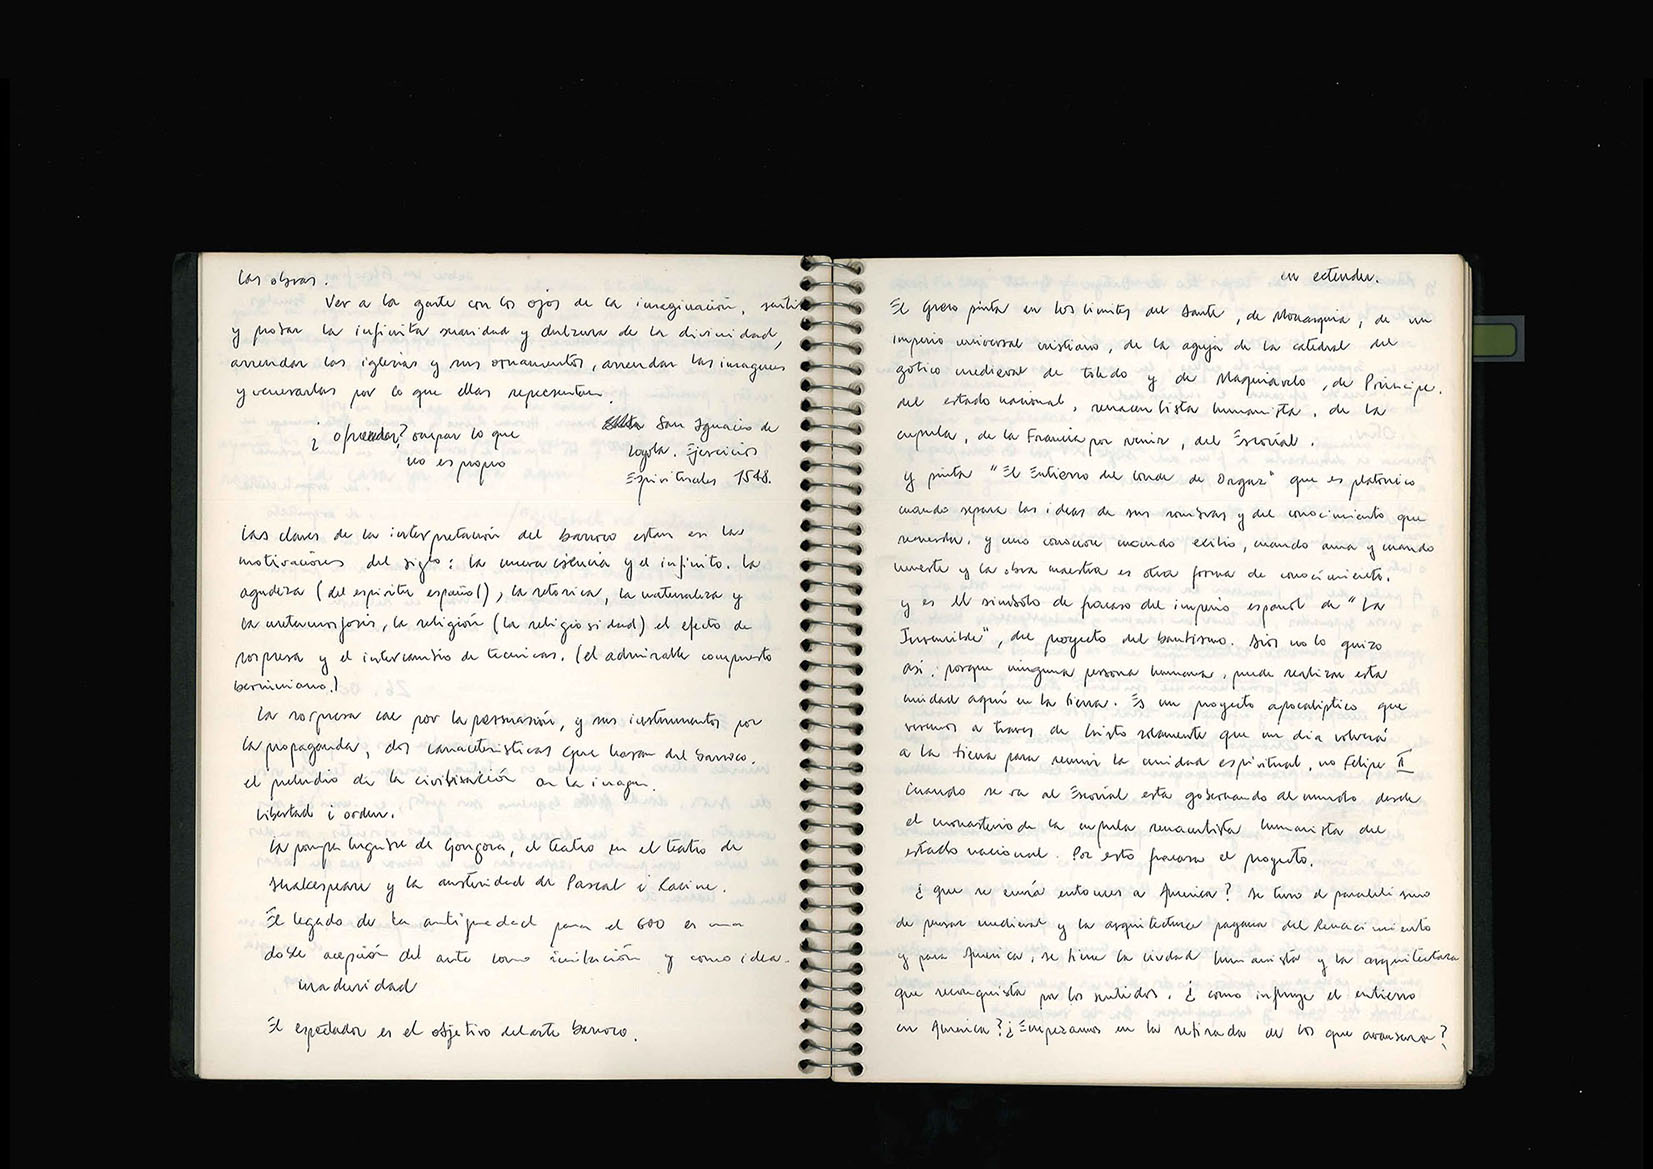 las obras.
Ver a la gente con los ojos de la imaginación, sentir
y posar la infinita suavidad y dulzura de la divinidad,
arrendar las iglesias y sus ornamentos, arrendar las imagenes
y venerarlas por lo que ellas representan.
San Ignacio de
¿ofrendar? ocupar lo que
Loyola. Ejercicios
no es propio
Espirituales 1548.
Las claves de la interpretación del barroco estan en las
motivaciones del siglo: la nueva ciencia y el infinito. la
agudeza (del espíritu español), la retórica, la naturaleza y
la metamorfosis, la religión (la religiosidad) el efecto de
sorpresa y el intercambio de tecnicas. (el admirable compuesto
berniniano.)
La sorpresa cae por la persuasión, y sus instrumentos por
la propaganda, dos caracteristicas que hacen del barroco.
el preludio de la civilización de la imagen.
libertad i orden.
la pompa lugubre de Gongora, el teatro en el teatro de
Shakespeare y la austeridad de Pascal i Racine.
El legado de la antiguedad para el 600 es una
doble acepción del arte como imitación y como idea.
maduridad
El espectador es el objetivo del arte barroco.
en extender.
El Greco pinta en los limites del Sante, de Monarquia, de un
imperio universal cristiano, de la aguja de la catedral del
gotico medieval de toledo y de Maquiavelo, de Principe.
del estado nacional, renacentista humanista, de la
cupula, de la Francia por venir, del Escorial.
y pinta "El Entierro del conde de Orgaz" que es platonico
cuando separa las ideas de sus sombras y del conocimiento que
recuerda. y uno conoce cuando exilio, cuando ama y cuando
muerte y la obra maestra es otra forma de conocimiento.
y es el simbolo de fracaso del imperio español de "La
Invencible", del proyecto del bautismo. Dios no lo quizo
asi. porque ninguna persona humana, puede realizar esta
unidad aquí en la tierra. Es un proyecto apocaliptico que
veremos a traves de Cristo solamente que un dia volverá
a la tierra para reunir la unidad espiritual. no Felipe II
Cuando se va al Escorial esta gobernando al mundo desde
el monasterio de la cupula renacentista humanista del
estado nacional. Por esto fracasa el proyecto.
¿que se envió entonces a America? se tuvo el paralelismo
de pensar medieval y la arquitectura pagana del Renacimiento
y para America, se tiene la ciudad humanista y la arquitectura
que reconquista por los sentidos. ¿como influye el entierro
en America? ¿Empezamos en la retirada de los que avanzaron?